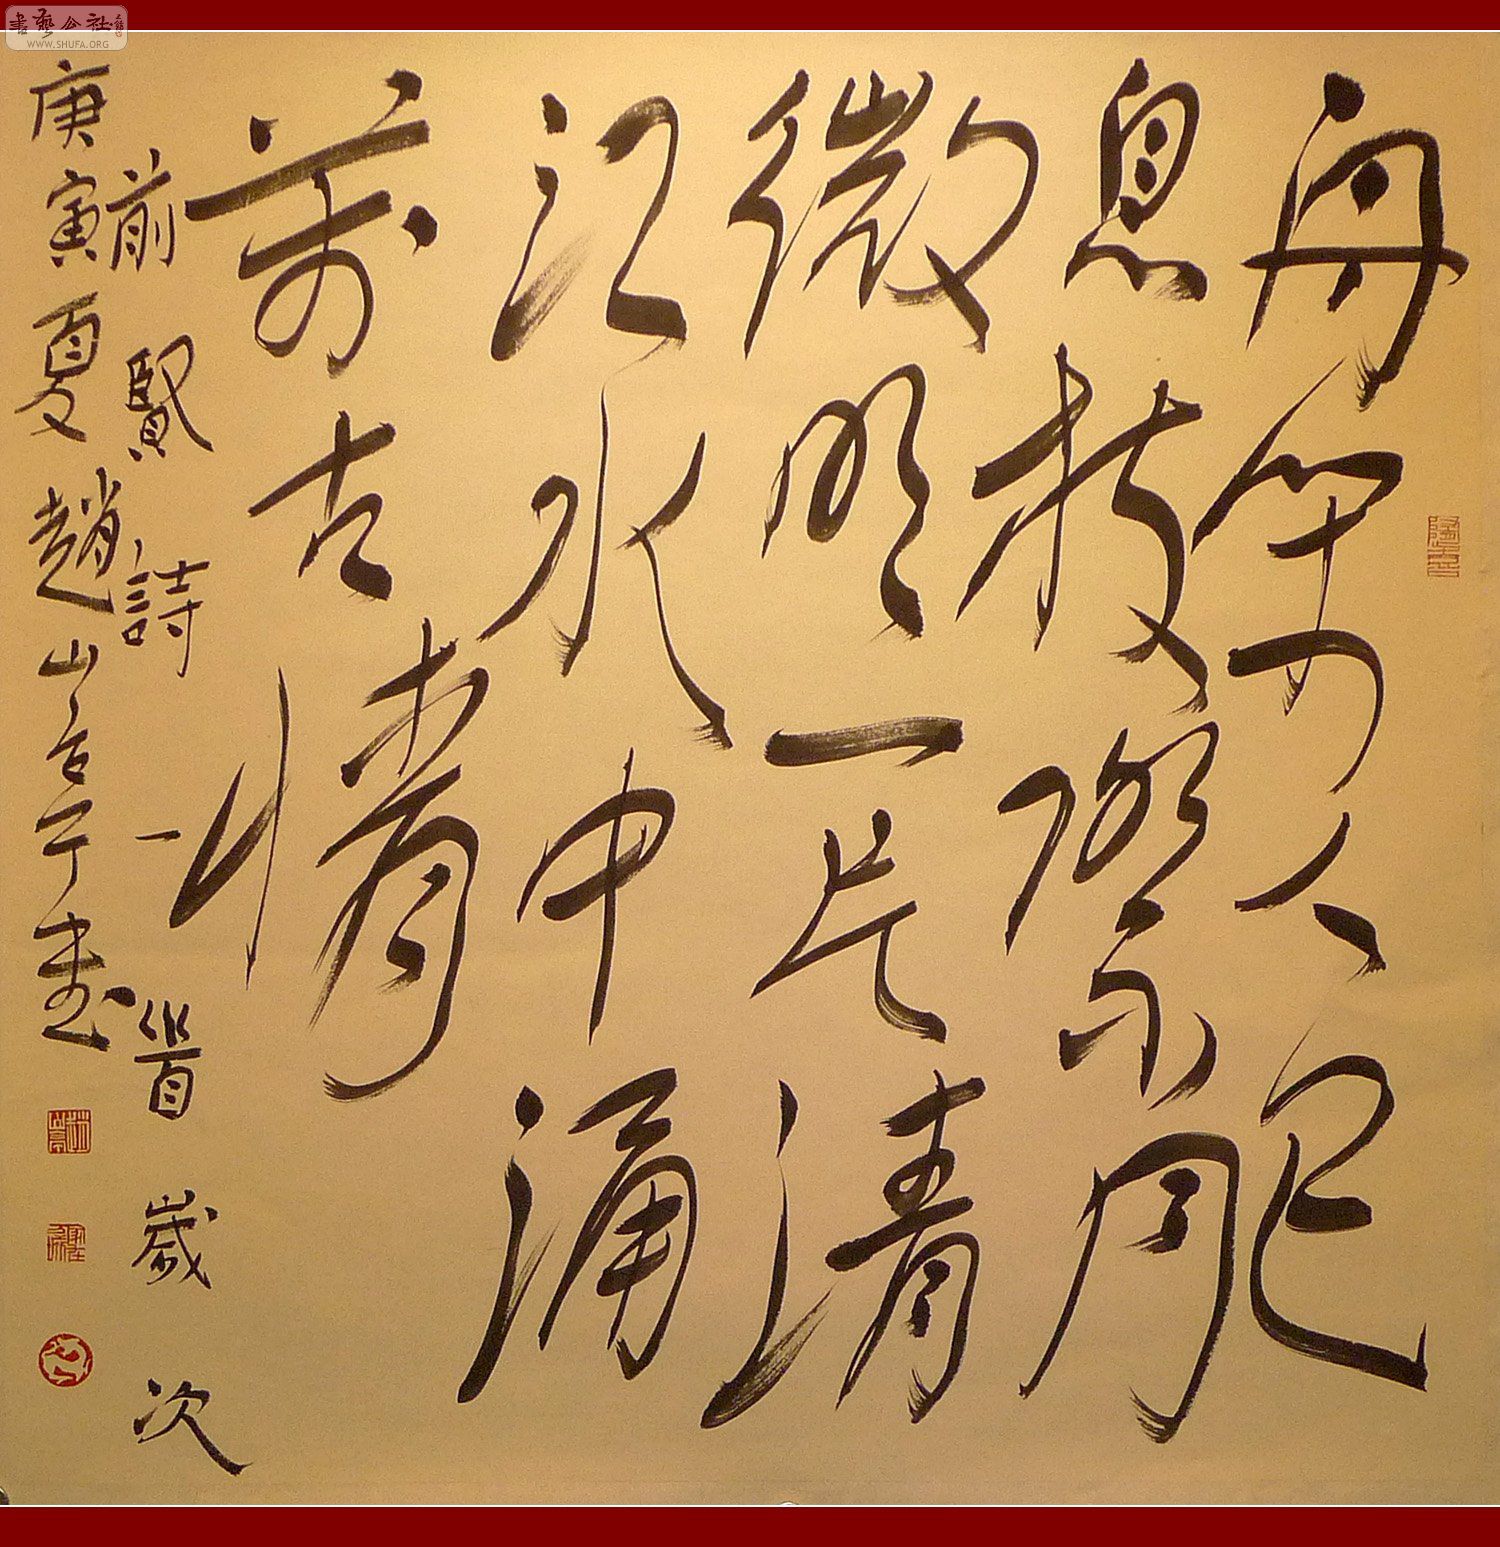 舟人
息枝際月
微明一片清
江水中涌
萬古情
前賢詩一首歲次
庚寅夏趙山亭書
書藝公社
WWW.SHUFA.ORG